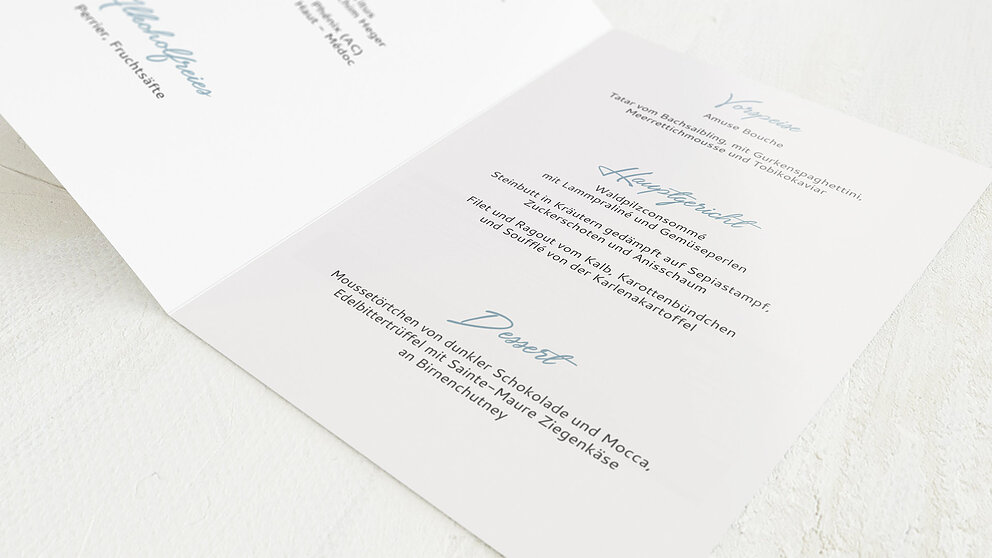 Alkoholfreies
Perrier, Fruchtsäfte
Heger
Phönix (AC)
Haut – Médoc
Vorspeise
Amuse Bouche
Tatar vom Bachsaibling, mit Gurkenspaghettini,
Meerrettichmousse und Tobikokaviar
Hauptgericht
Waldpilzconsommé
mit Lammpraliné und Gemüseperlen
Steinbutt in Kräutern gedämpft auf Sepiastampf,
Zuckerschoten und Anisschaum
Filet und Ragout vom Kalb, Karottenbündchen
und Soufflé von der Karlenakartoffel
Dessert
Moussetörtchen von dunkler Schokolade und Mocca,
Edelbittertrüffel mit Sainte–Maure Ziegenkäse
an Birnenchutney